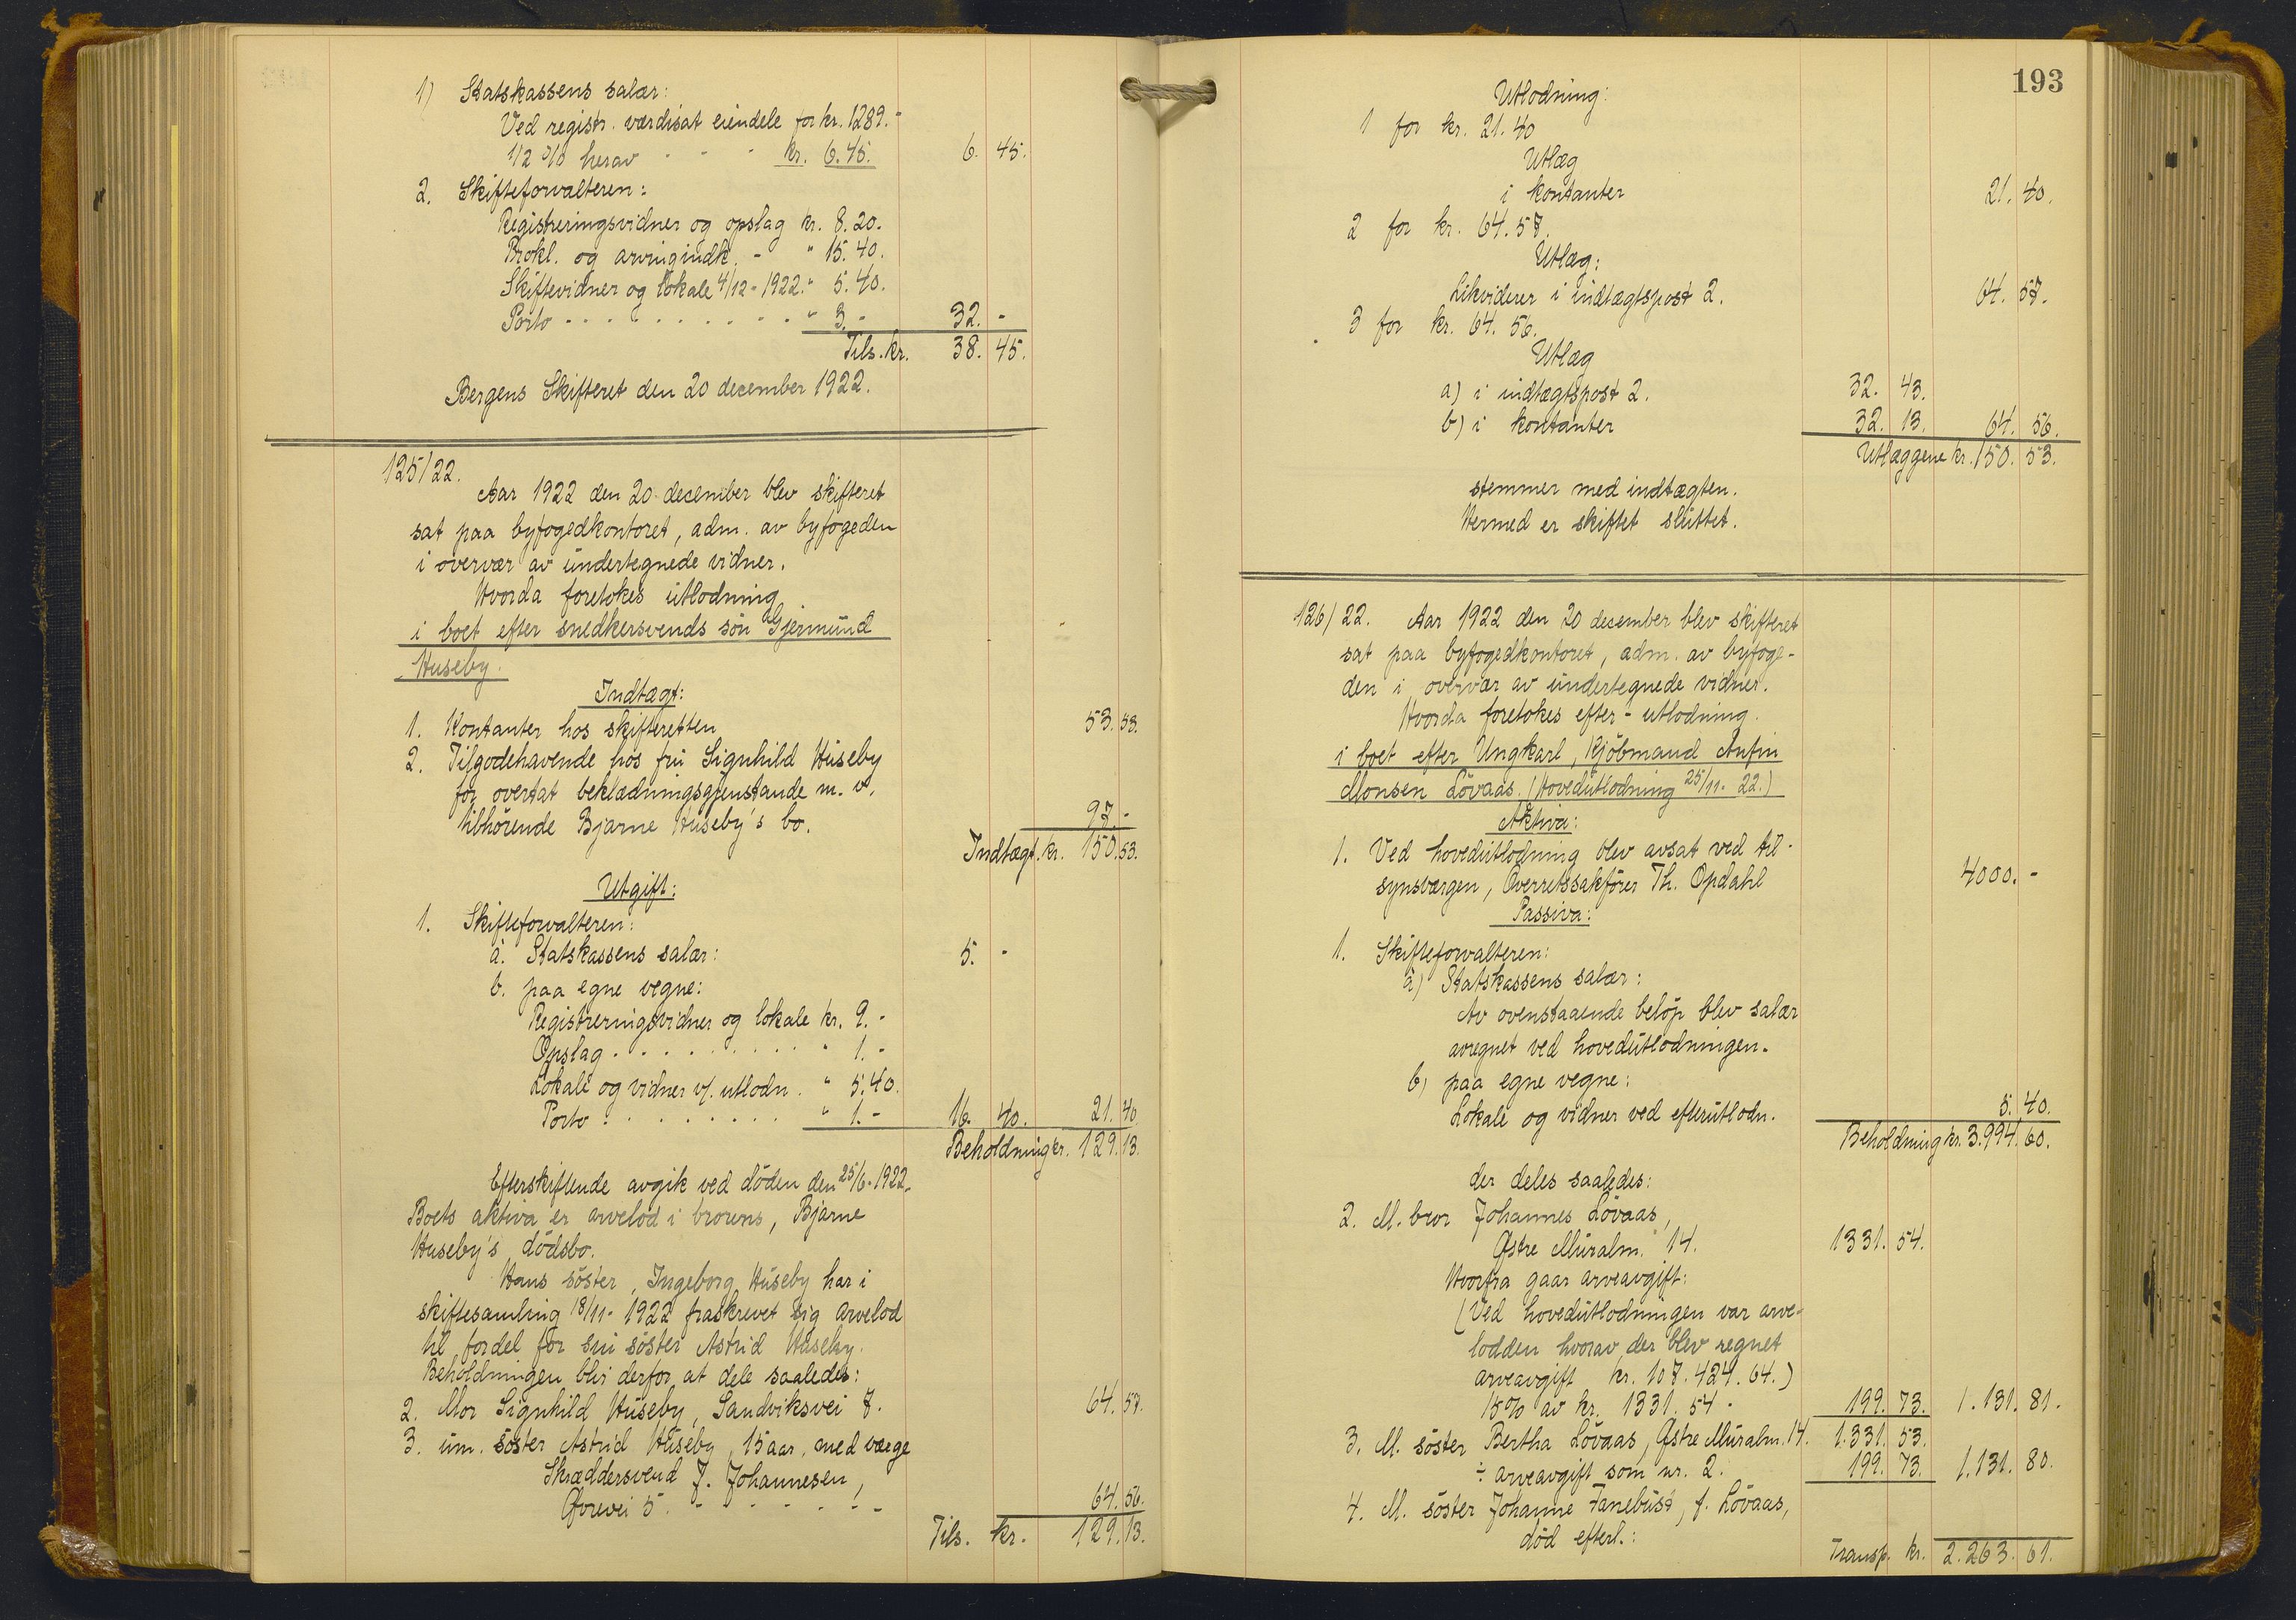 1) Statskassens salær:
Ved registr. værdisat eiendele for kr. 1289.-
1/2 o/o herav - - - kr. 6.45. 6. 45.
2. Skifteforvalteren:
Registreringsvidner og opslag kr. 8.20.
Prokl. og arvingindk. - " 15.40.
Skiftevidner og lokale 4/12-1922." 5.40.
Porto - - - - - - - - - - " 3.- 32. -
Tils. kr. 38. 45.
Bergens Skifteret den 20 december 1922.
125/22.
Aar 1922 den 20 december blev skifteret
sat paa byfogedkontoret, adm. av byfogeden
i overvær av undertegnede vidner.
Hvorda foretokes utlodning
i boet efter snedkersvends søn Gjermund
Huseby.
Indtægt:
1. Kontanter hos skifteretten 53.53.
2. Tilgodehavende hos fru Signhild Huseby
for overtat beklædningsgjenstande m. v.
tilhørende Bjarne Huseby's bo. 97.-
Indtægt. kr. 150.53.
Utgift:
1. Skifteforvalteren:
a. Statskassens salær: 5. -
b. paa egne vegne:
Registreringsvidner og lokale kr. 9.-
Opslag - - - - - - - - - " 1.-
Lokale og vidner v/. utlodn. " 5.40.
Porto - - - - - - - - - " 1.- 16. 40. 21.40
Beholdning kr. 129.13.
Efterskiftende avgik ved døden den 25/6-1922.
Boets aktiva er arvelod i brorens, Bjarne
Huseby's dødsbo.
Hans søster, Ingeborg Huseby har i
skiftesamling 18/11-1922 fraskrevet sig arvelod
til fordel for sin søster Astrid Huseby.
Beholdningen blir derfor at dele saaledes:
2. Mor Signhild Huseby, Sandviksvei 7. 64.57.
3. um. søster Astrid Huseby, 15 aar, med værge
Skræddersvend J. Johannesen,
Øvrevei 5. - - - - - - 64.56.
Tils. kr. 129.13.
193
Utlodning:
1 for kr. 21.40
Utlæg
i kontanter 21. 40.
2 for kr. 64.57.
Utlæg:
Likviderer i indtægtspost 2. 64. 57.
3 for kr. 64.56.
Utlæg
a) i indtægtspost 2. 32. 43.
b) i kontanter 32. 13. 64. 56.
Utlæggene kr. 150. 53.
stemmer med indtægten.
Hermed er skiftet sluttet.
126/22. Aar 1922 den 20 december blev skifteret
sat paa byfogedkontoret, adm. av byfoge-
den i overvær av undertegnede vidner.
Hvorda foretokes efter-utlodning.
i boet efter Ungkarl, Kjøbmand Anfin
Monsen Løvaas. (Hovedutlodning 25/11-22.)
Aktiva:
1. Ved hovedutlodning blev avsat ved til-
synsværgen, Overretssakfører Th. Opdahl 4000. -
Passiva:
1. Skifteforvalteren:
a) Statskassens salær:
Av ovenstaaende beløp blev salær
avregnet ved hovedutlodningen.
b) paa egne vegne:
Lokale og vidner ved efterutlodn. 5. 40.
Beholdning kr. 3.994. 60.
der deles saaledes:
2. M. bror Johannes Løvaas,
Østre Muralm. 14. 1331. 54.
Hvorfra gaar arveavgift:
(Ved hovedutlodningen var arve-
lodden hvorav der blev regnet
arveavgift kr. 107.424.64.)
15% av kr. 1331.54 - 199. 73. 1.131. 81.
3. M. søster Bertha Løvaas, Østre Muralm. 14. 1.331. 53.
÷ arveavgift som nr. 2. 199. 73. 1.131. 80.
4. M. søster Johanne Fanebust, f. Løvaas,
død efterl.:
Transp. kr. 2.263. 61.